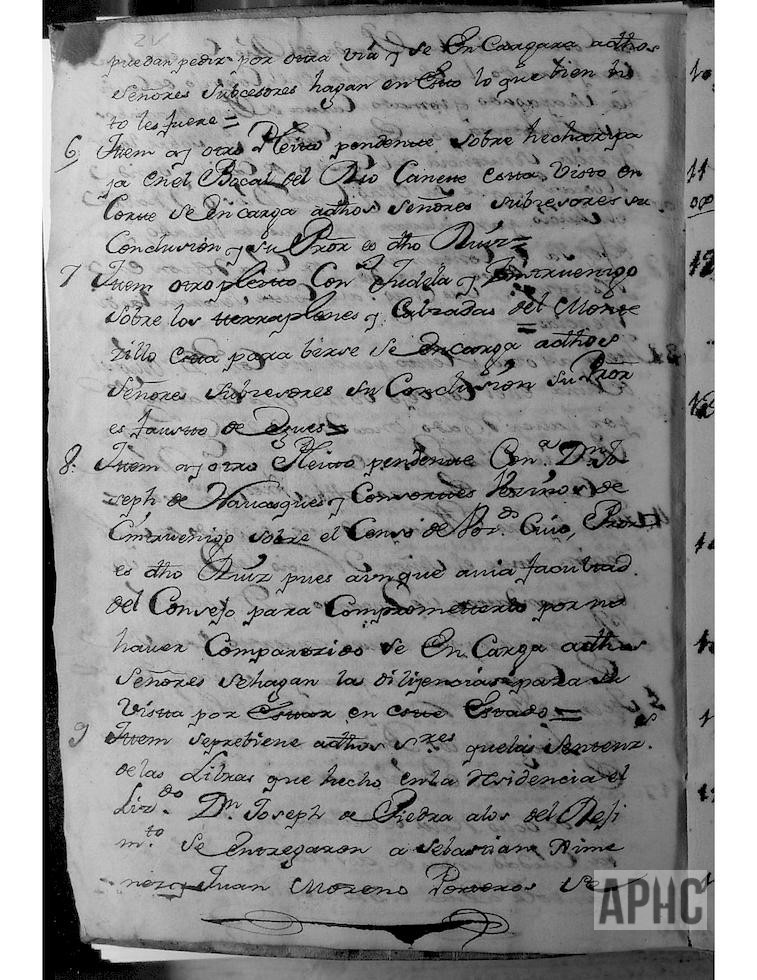 puedan pedir por otra via y se En Cargara adthos
Señores Subcesores hagan en Esto lo que bien vis
to les fuere =
6 Ytem ay otro Pleito pendente sobre hechar pa
ja en el Bocal del Rio Canete esta Visto en
Corte se encarga adthos Señores subcesores su
Conclusion y su Pror es dho Ruiz =
7 Ytem otro pleito Con Tudela y Zintruenigo
Sobre los terraplenes y Calzadas del Monte
zillo esta para berse se encarga adthos
Señores subcesores su Conclusion su Pror
es fausto de =
8. Ytem ay otro Pleito pendente Con.a Dn Jo
seph de Navasques y Consortes Vezinos de
Cintruenigo sobre el Censo de
es dho Ruiz pues aunque avia facultad
del Consejo para Comprometerlo por no
haver Comparezido se En Carga adthos
Señores se hagan las dilijencias para su
Vista por Estar en este Estado =
9 Ytem seprebiene adthos Sres. quelas Sentenz.
de las Libras que hecho en la Residencia el
Liz.do Dn Joseph de Piedra alos del Reji
m.to Se entregaron a Sebastian Xime
nez y Juan Moreno Porteros de
APHC